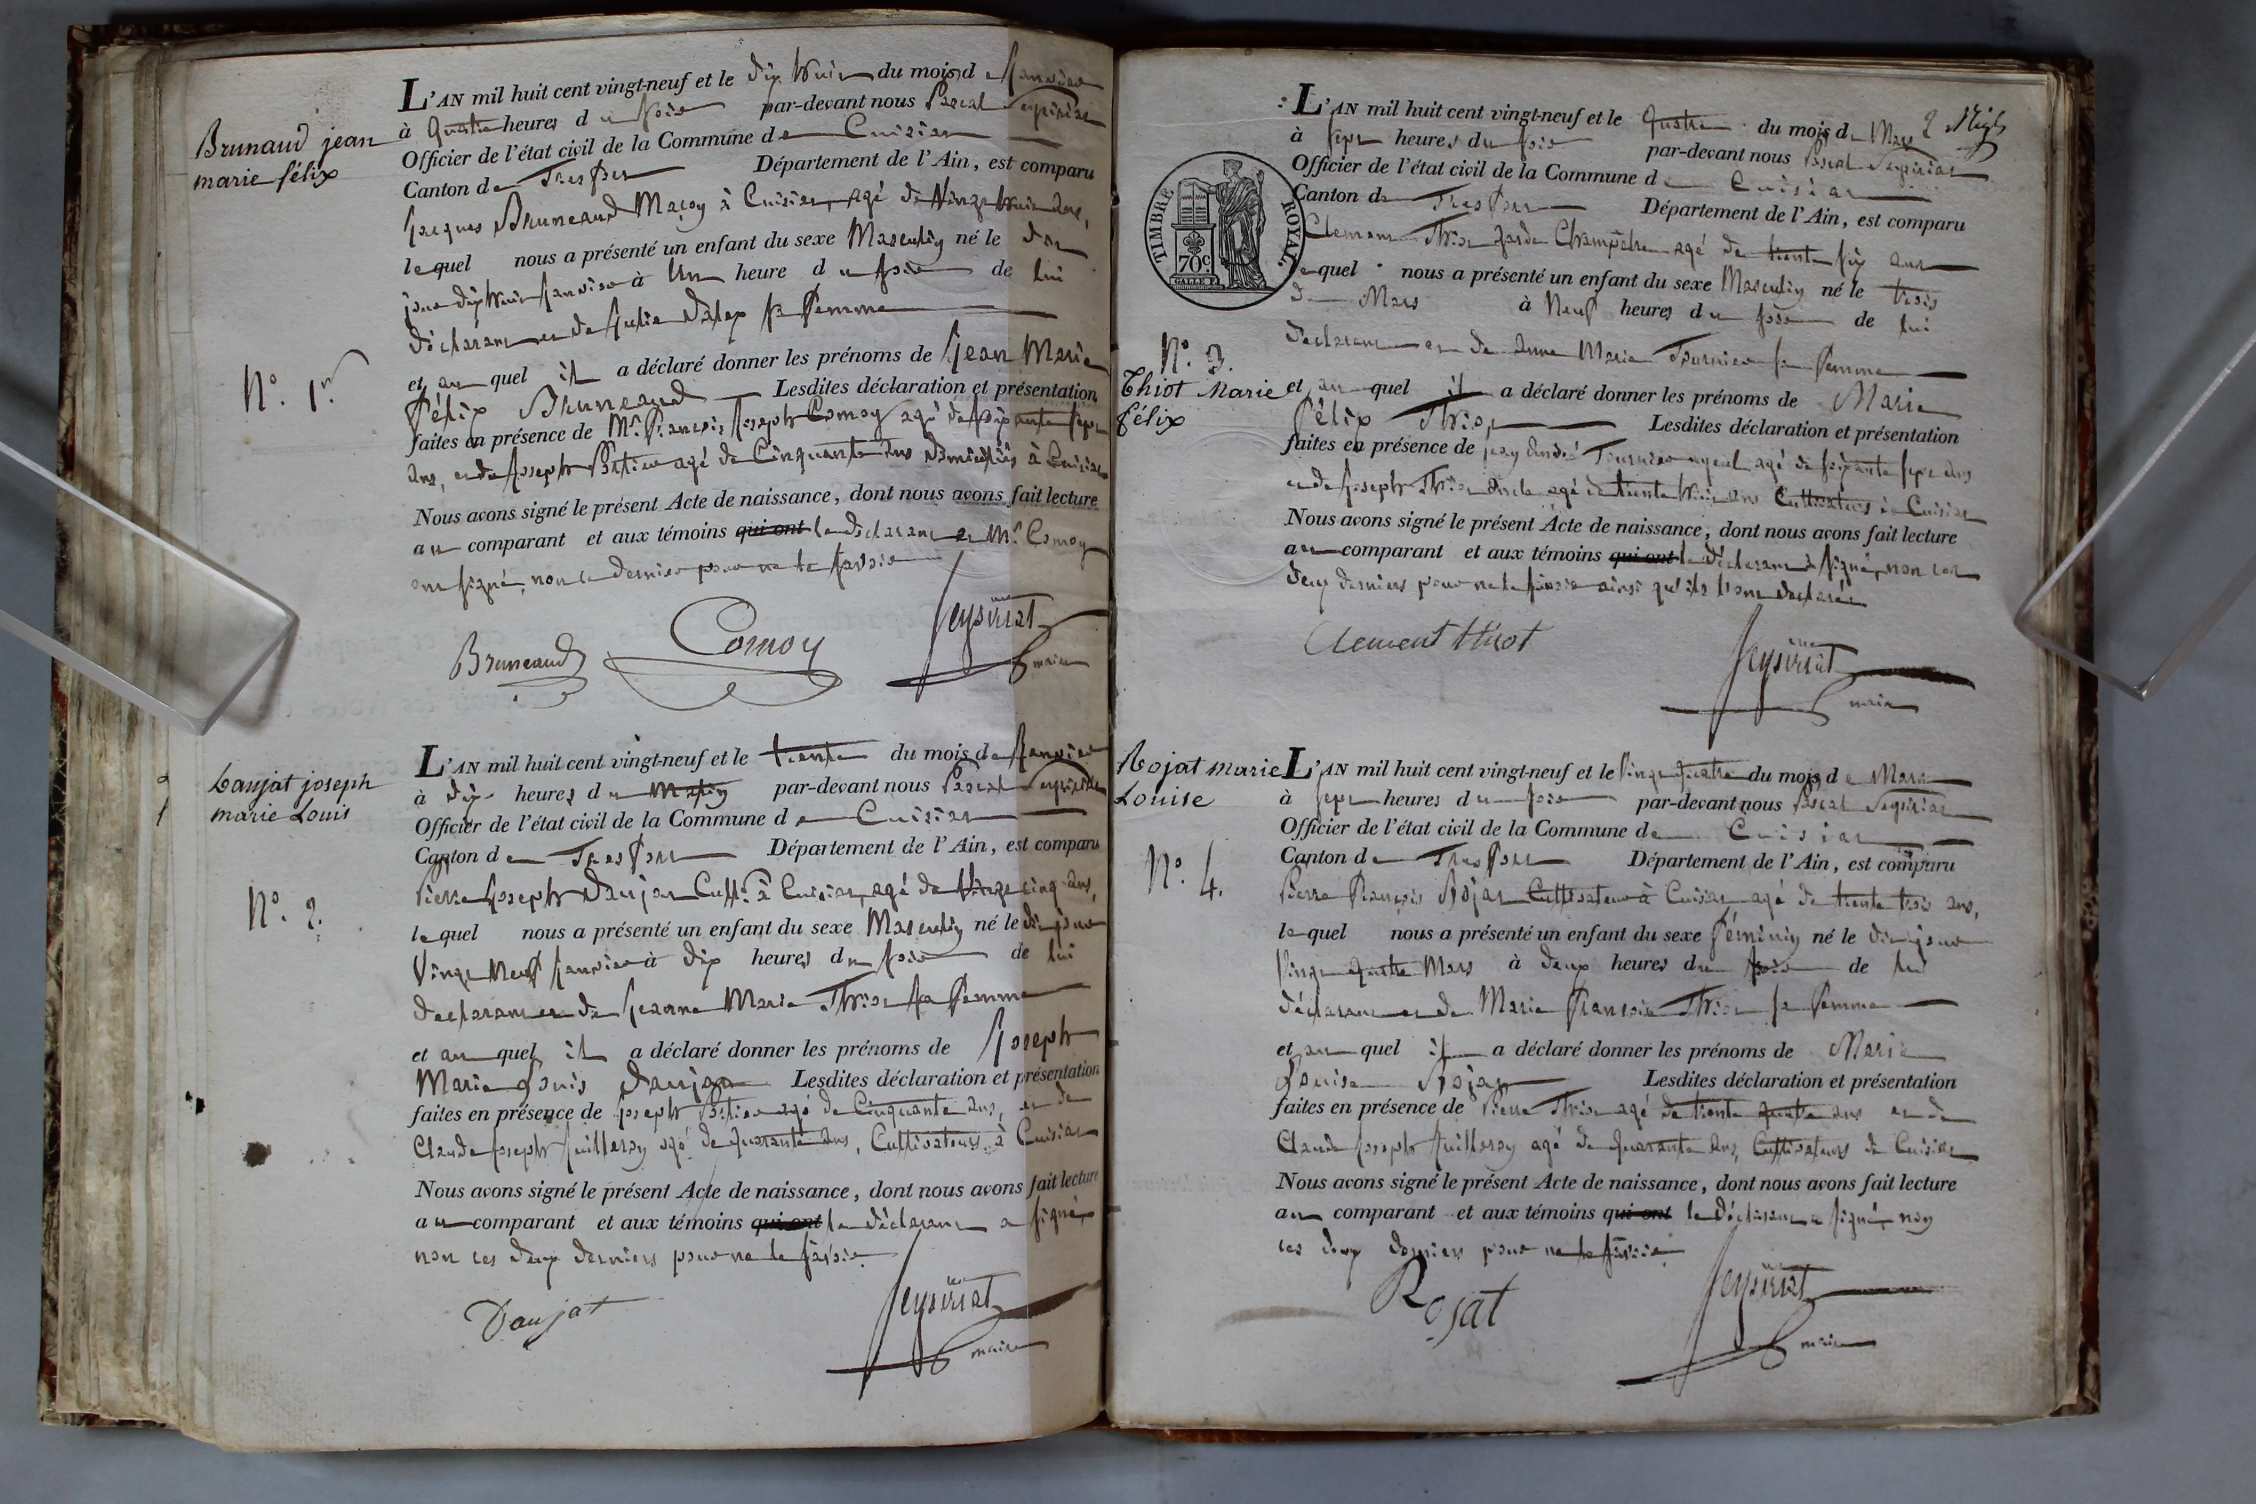 Brunaud jean
marie félix
N.º 1.er
L'AN mil huit cent vingt-neuf et le dix huit du mois de Janvier
à quatre heures du soir par-devant nous Pascal Seysiriat
Officier de l'état civil de la Commune de Cuisiat
Canton de Treffort Département de l'Ain, est comparu
Jacques Bruneaud Maçon à Cuisiat, agé de Vingt huit ans,
lequel nous a présenté un enfant du sexe Masculin né le dit
jour dix huit Janvier à Un heure du soir de lui
déclarant et de Julie Dalex sa femme
et au quel il a déclaré donner les prénoms de Jean Marie
Félix Bruneaud Lesdites déclaration et présentation
faites en présence de Mr. François Joseph Comoy agé de soixante sept
ans, et de Joseph Pitiou agé de Cinquante ans domiciliés à Cuisiat
Nous avons signé le présent Acte de naissance, dont nous avons fait lecture
au comparant et aux témoins qui ont le déclarant et Mr. Comoy
ont signé, non ce dernier pour ne le savoir
Bruneaud Comoy Seysiriat
maire
Daujat joseph
marie Louis
N.º 2.
L'AN mil huit cent vingt-neuf et le trente du mois de Janvier
à dix heures du Matin par-devant nous Pascal Seysiriat
Officier de l'état civil de la Commune de Cuisiat
Canton de Treffort Département de l'Ain, est comparu
Pierre Joseph Daujat Cultr. à Cuisiat, agé de Vingt cinq ans,
lequel nous a présenté un enfant du sexe Masculin né le dit jour
Vingt Neuf Janvier à dix heures du soir de lui
déclarant et de Jeanne Marie Thiot sa femme
et au quel il a déclaré donner les prénoms de Joseph
Marie Louis Daujat Lesdites déclaration et présentation
faites en présence de Joseph Pitiou agé de Cinquante ans, et de
Claude Joseph Guilleroy agé de quarante ans, Cultivateurs à Cuisiat
Nous avons signé le présent Acte de naissance, dont nous avons fait lecture
au comparant et aux témoins qui ont le déclarant a signé,
non ces deux derniers pour ne le savoir.
Daujat Seysiriat
maire
TIMBRE ROYAL.
70c
N.º 3.
Thiot Marie
félix
L'AN mil huit cent vingt-neuf et le quatre du mois de Mars
à sept heures du soir par-devant nous Pascal Seysiriat
Officier de l'état civil de la Commune de Cuisiat
Canton de Treffort Département de l'Ain, est comparu
Clement Thiot garde Champêtre agé de trente six ans
lequel nous a présenté un enfant du sexe Masculin né le trois
de Mars à Neuf heures du soir de lui
declarant et de Anne Marie Tournier sa femme
et au quel il a déclaré donner les prénoms de Marie
Félix Thiot Lesdites déclaration et présentation
faites en présence de jean André Tournier ayeul agé de soixante sept ans
et de Joseph Thiot oncle agé de trente huit ans Cultivateurs à Cuisiat
Nous avons signé le présent Acte de naissance, dont nous avons fait lecture
au comparant et aux témoins qui ont le déclarant a signé, non ces
deux derniers pour ne le savoir ainsi qu'ils l'ont declaré
Clement thiot Seysiriat
maire
Rojat marie
Louise
N.º 4.
L'AN mil huit cent vingt-neuf et le Vingt quatre du mois de Mars
à sept heures du soir par-devant nous Pascal Seysiriat
Officier de l'état civil de la Commune de Cuisiat
Canton de Treffort Département de l'Ain, est comparu
Pierre François Rojat Cultivateur à Cuisiat agé de trente trois ans,
lequel nous a présenté un enfant du sexe féminin né le dit jour
Vingt quatre Mars à deux heures du soir de lui
déclarant et de Marie Françoise Thiot sa femme
et au quel il a déclaré donner les prénoms de Marie
Louise Rojat Lesdites déclaration et présentation
faites en présence de Pierre Thiot agé de trente quatre ans et de
Claude Joseph Guilleroy agé de quarante ans, Cultivateurs de Cuisiat
Nous avons signé le présent Acte de naissance, dont nous avons fait lecture
au comparant et aux témoins qui ont le déclarant a signé, non
ces deux derniers pour ne le savoir.
Rojat Seysiriat
maire